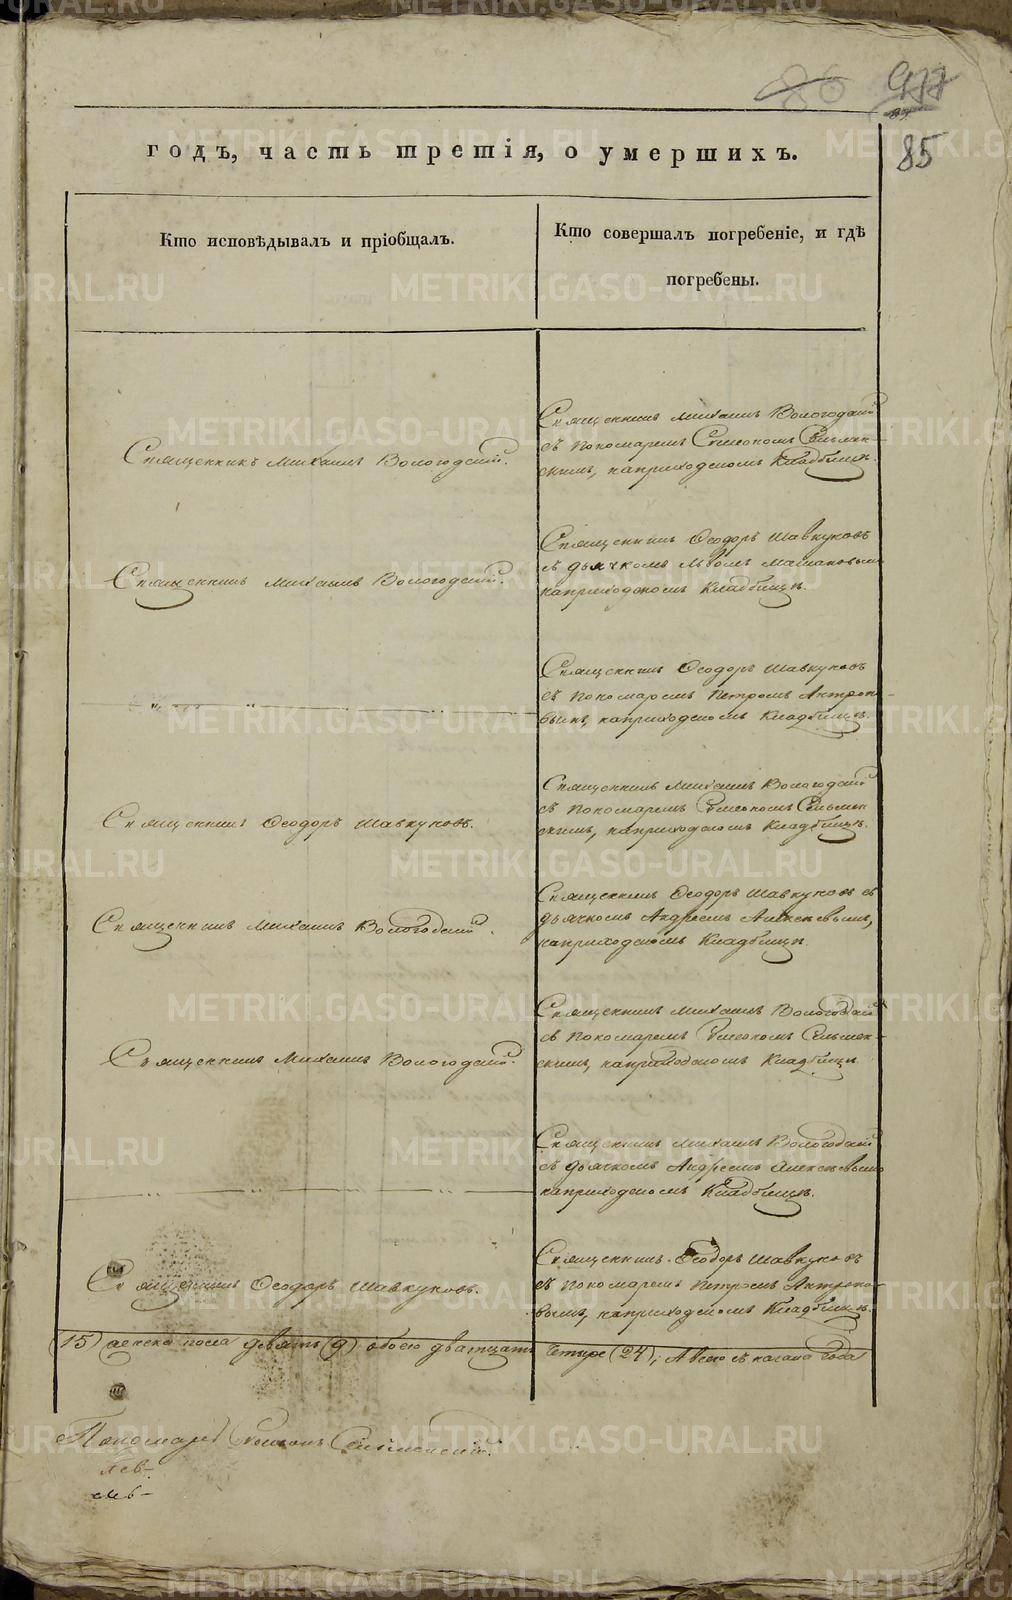 86 477
85
годъ, часть третія, о умершихъ.
Кто исповѣдывалъ и пріобщалъ.
Кто совершалъ погребеніе, и гдѣ
погребены.
Священникъ Михаилъ Вологодскій.
Священникъ Михаилъ Вологодскій
съ Пономаремъ Симеономъ Сельмен-
скимъ, наприходскомъ Кладбищѣ.
Священникъ Михаилъ Вологодскій.
Священникъ Ѳеодоръ Шавкуновъ
съ дьячкомъ
наприходскомъ Кладбищѣ.
Священникъ Ѳеодоръ Шавкуновъ
съ Пономаремъ Петромъ Антропо-
вымъ, наприходскомъ Кладбищѣ.
Священникъ Ѳеодоръ Шавкуновъ.
Священникъ Михаилъ Вологодскій
съ Пономаремъ Симеономъ Сельмен
скимъ, наприходскомъ Кладбищѣ.
Священникъ Михаилъ Вологодскій.
Священникъ Ѳеодоръ Шавкуновъ съ
дьячкомъ Андреемъ Алексѣевымъ,
наприходскомъ Кладбищѣ.
Священникъ Михаилъ Вологодскій.
Священникъ Михаилъ Вологодскій
съ Пономаремъ Симеономъ Сельмен-
скимъ, наприходскомъ Кладбищѣ
Священникъ Михаилъ Вологодскій
съ дьячкомъ Андреемъ Алексѣевымъ
наприходскомъ Кладбищѣ.
Священникъ Ѳеодоръ Шавкуновъ.
Священникъ Ѳеодоръ Шавкуновъ
съ Пономаремъ Петромъ Антропо-
вымъ, наприходскомъ Кладбищѣ.
(15) женска пола девять (9) обоего дватцать четыре (24); А всего съ начала года
Пономарь Симеонъ Сельменскій.
METRIKI.GASO-URAL.RU